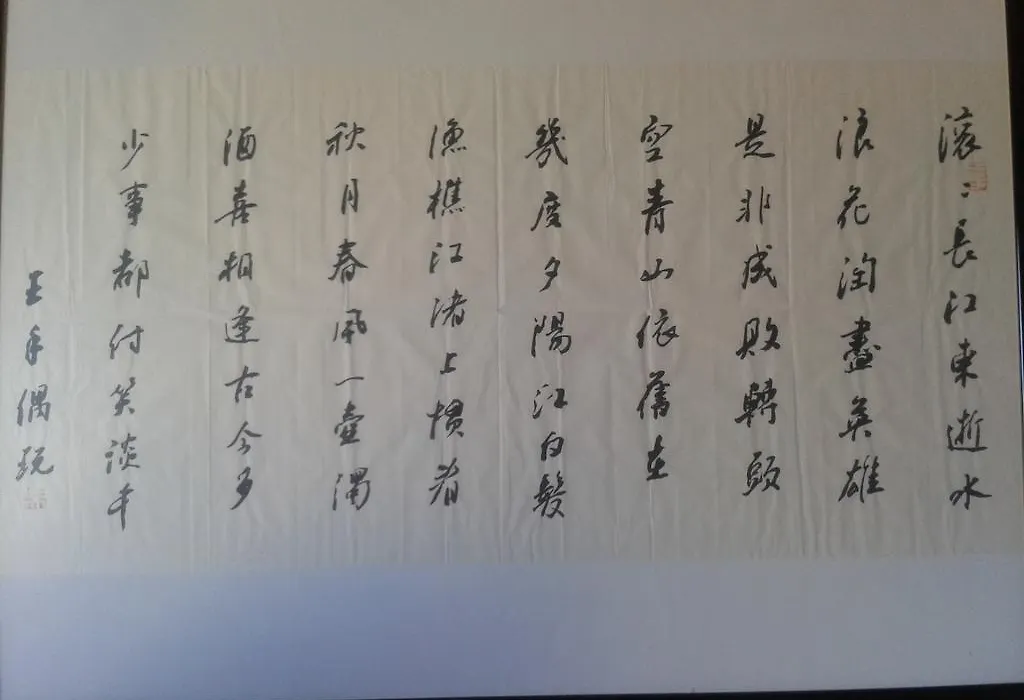 滚〻長江東逝水
浪花淘盡英雄
是非成敗轉頭
空青山依舊在
幾度夕陽江白髮
漁樵江渚上慣看
秋月春風一壺濁
酒喜相逢古今多
少事都付笑談中
偶玩